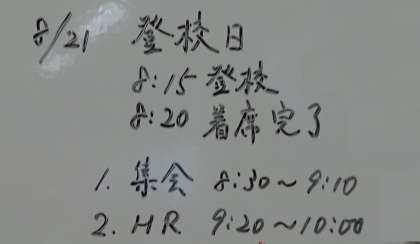 8/21 登校日
8:15 登校
8:20 着席完了
1. 集会 8:30～9:10
2. HR 9:20～10:00